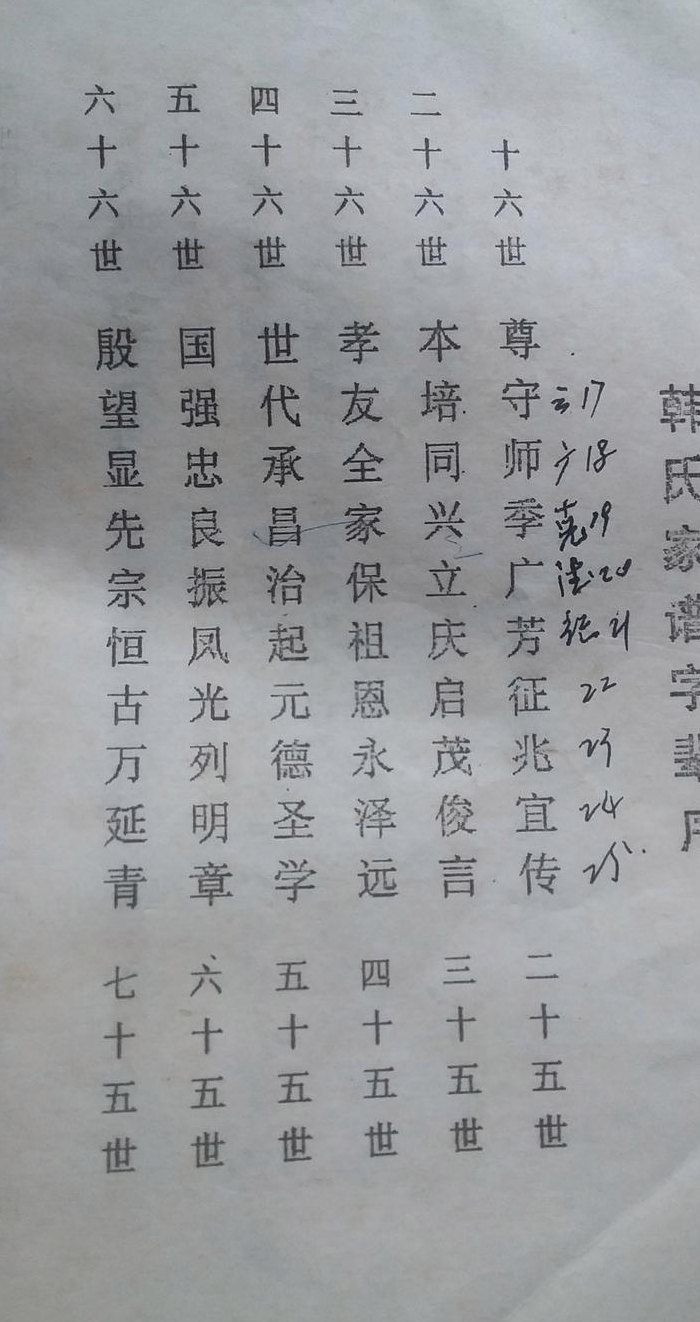 韩氏家谱字辈
十六世 尊守师季广芳征兆宜传 二十五世
17
18
19
20
21
22
23
24
25
二十六世 本培同兴立庆启茂俊言 三十五世
三十六世 孝友全家保祖恩永泽远 四十五世
四十六世 世代承昌治起元德圣学 五十五世
五十六世 国强忠良振凤光列明章 六十五世
六十六世 殷望显先宗恒古万延青 七十五世